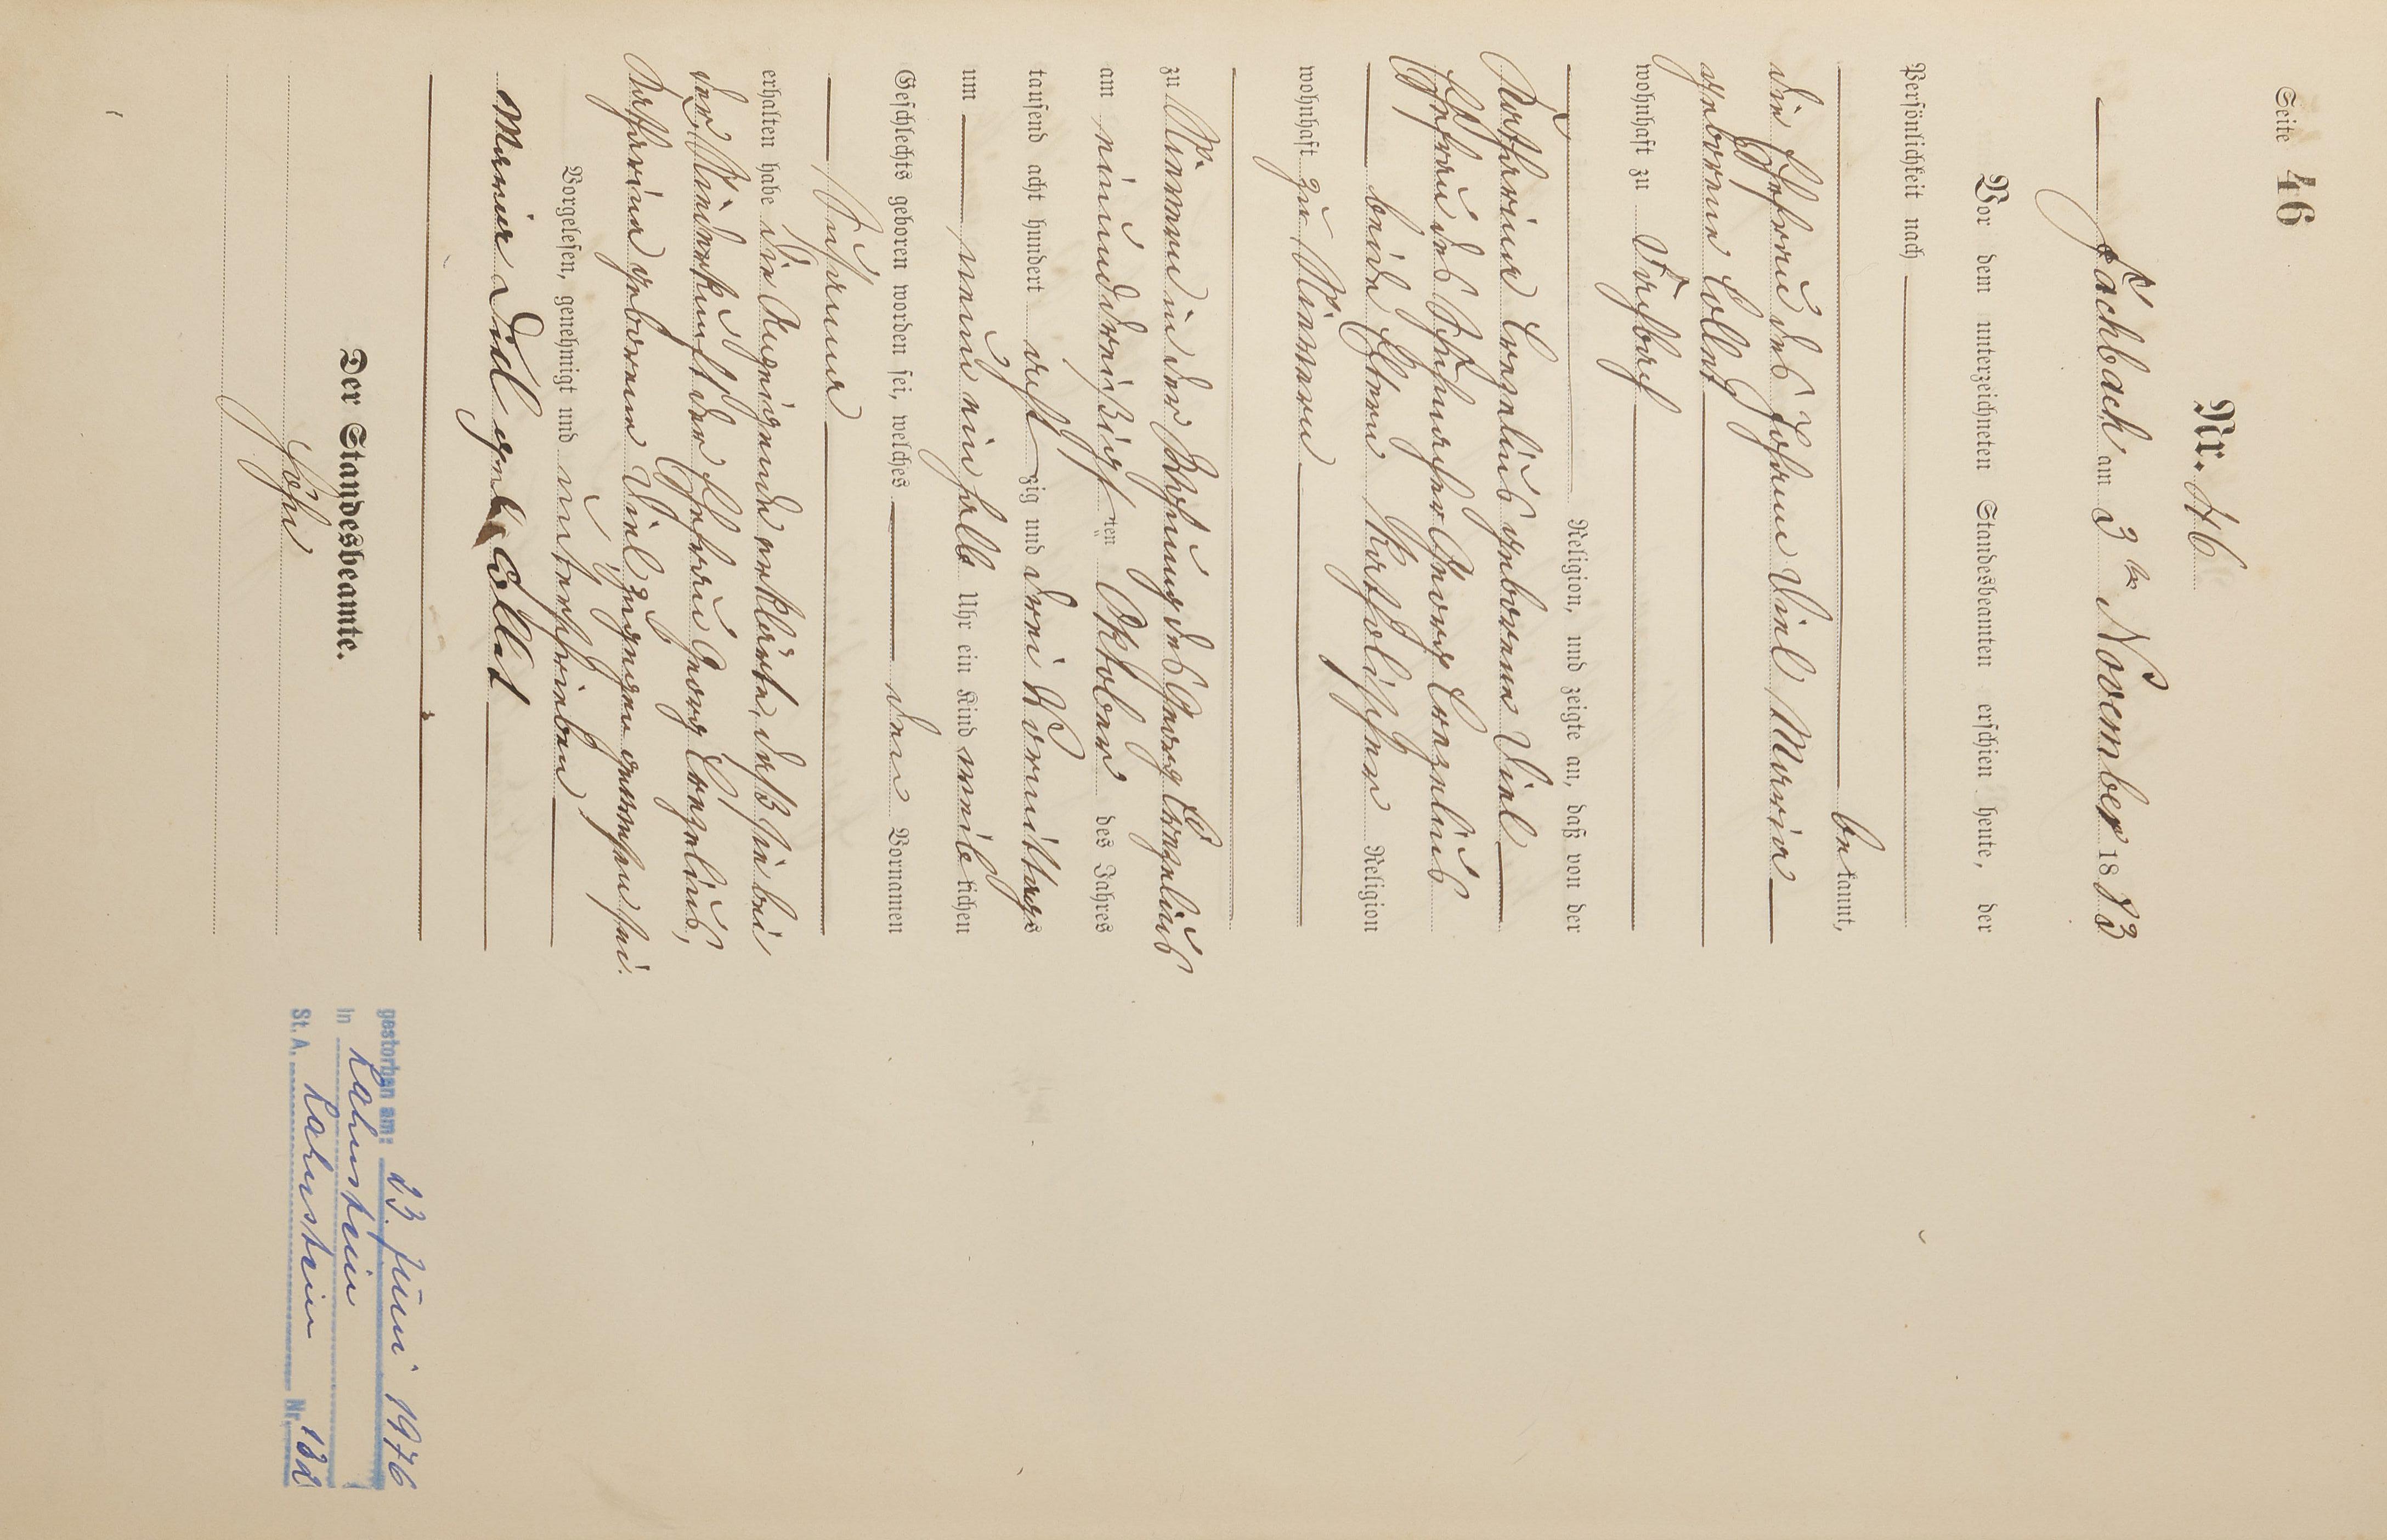 Seite 46
Nr. 46
Fachbach am 3ten November 1883
Vor dem unterzeichneten Standesbeamten erschien heute, der
Persönlichkeit nach
bekannt,
die Ehefrau des Johann Diel Maria
geborene Collet
wohnhaft zu Fachbach
Religion, und zeigte an, daß von der
Katharina Crezelius geborene Diel
Ehefrau des Georg Crezelius
beide Eltern Katholischer Religion
wohnhaft zu Nievern
zu Nievern in der Wohnung des Georg Crezelius
am einunddreißigsten Oktober des Jahres
tausend acht hundert achtzig und drei Vormittags
um neun ein halb Uhr ein Kind weiblichen
Geschlechts geboren worden sei, welches den Vornamen
Johanna
erhalten habe die Anzeigende erklärte, daß sie bei
der Niederkunft der Ehefrau Georg Crezelius,
Katharina geborene Diel zugegen gewesen sei.
Vorgelesen, genehmigt und unterschrieben
Maria Diel geb Collet
Der Standesbeamte.
gestorben am: 23. Juni 1976
in Lahnstein
St. A. Lahnstein Nr. 132